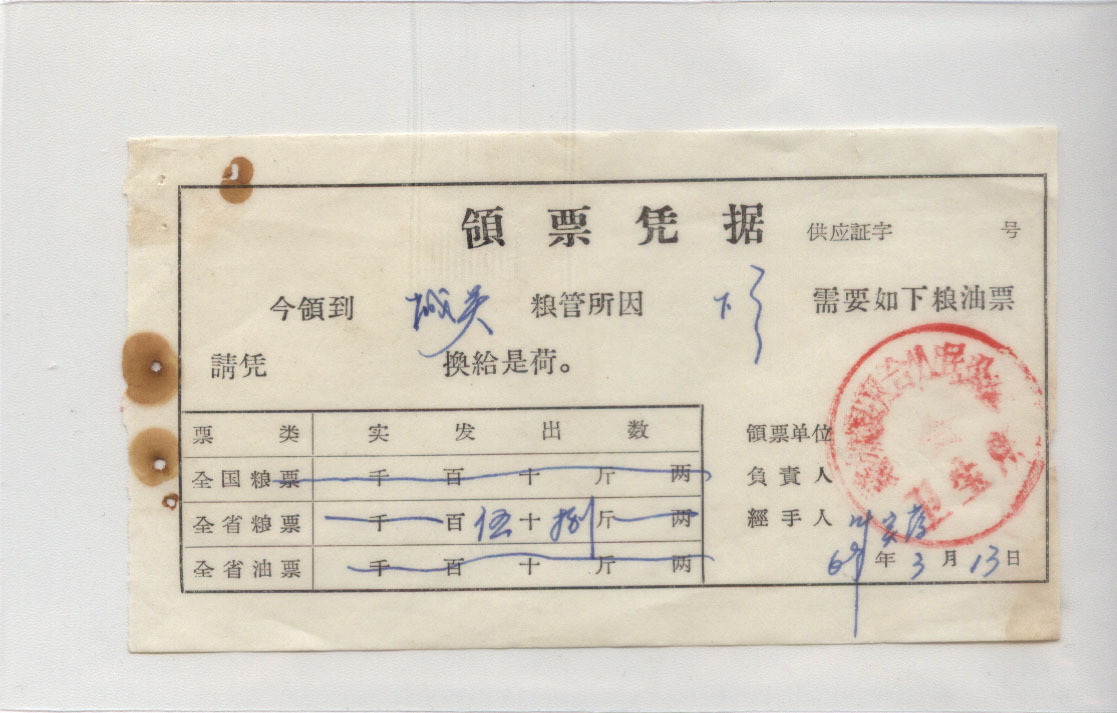 領票凭据 供应証字 号
今領到 城关 粮管所因 需要如下粮油票
請凭 換給是荷。
票类 实发出数
全国粮票 千 百 十 斤 两
全省粮票 千 百 伍 十 捌 斤 两
全省油票 千 百 十 斤 两
領票单位
負責人
經手人
年 3 月 13 日
卫生